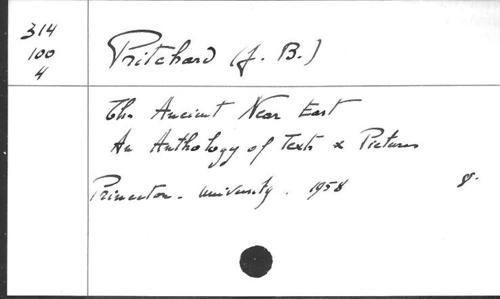 314
100
4
Pritchard (J. B.)
The Ancient Near East
An Anthology of Texts & Pictures
Princeton. University. 1958 8.